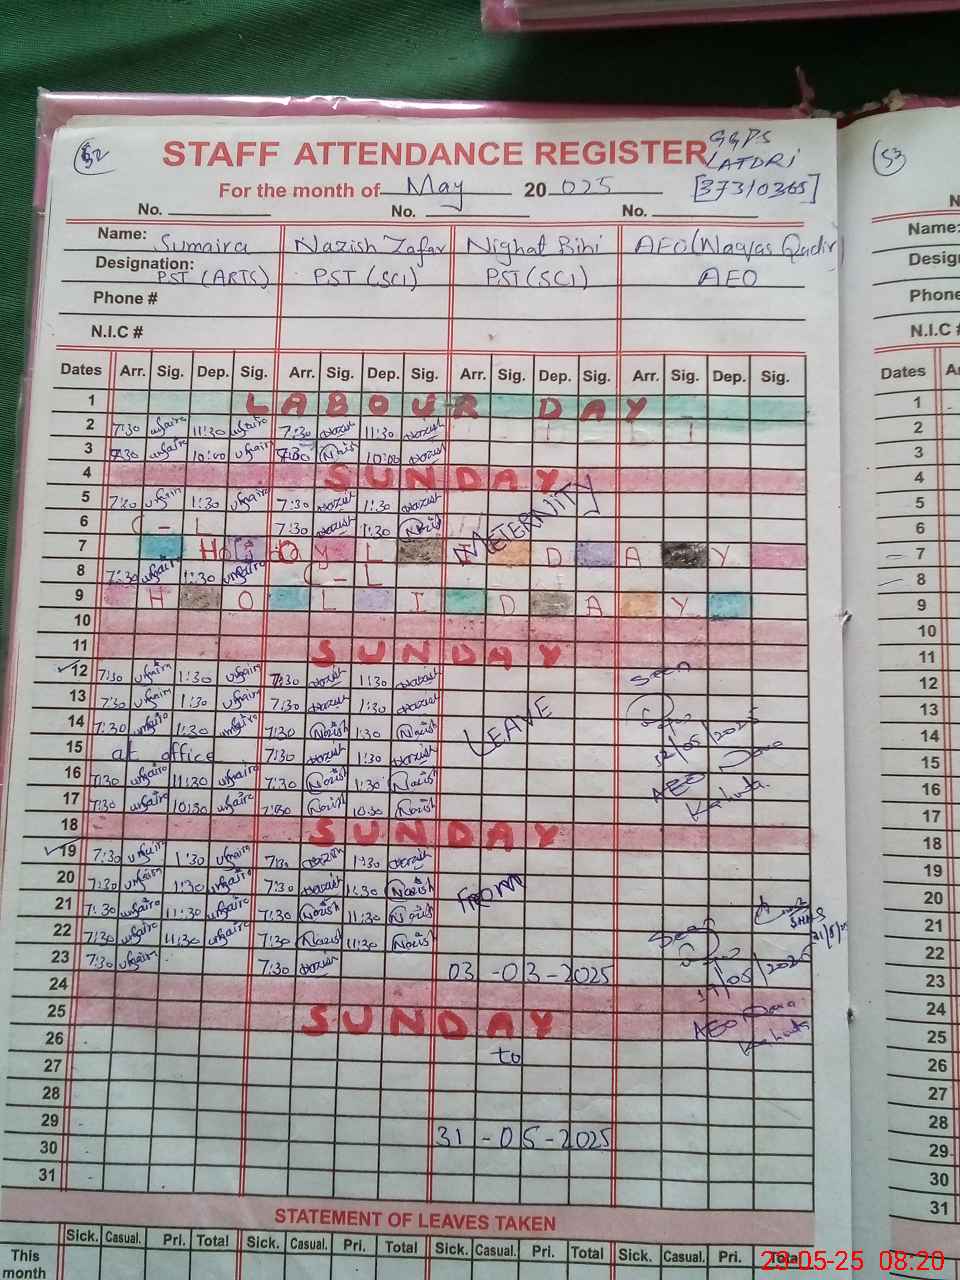 32
STAFF ATTENDANCE REGISTER
GGPS
LATDRI
[37310365]
53
For the month of May 20 025
No. No. No.
Name: Sumaira Nazish Zafar Nighat Bibi AEO (Waqas Qadir)
Designation: PST (ARTS) PST (SCI) PST (SCI) AEO
Phone #
N.I.C #
Dates Arr. Sig. Dep. Sig. Arr. Sig. Dep. Sig. Arr. Sig. Dep. Sig. Arr. Sig. Dep. Sig.
1 LABOUR DAY
2 7:30 11:30 7:30 Nazish 11:30 Nazish
3 7:30 10:00 7:30 Nazish 10:00 Nazish
4 SUNDAY
5 7:30 1:30 7:30 Nazish 1:30 Nazish
6 C-L 7:30 Nazish 1:30 Nazish
METERNITY
7 HOLIDAY
8 7:30 1:30 C-L
9 HOLIDAY
10
11 SUNDAY
12 7:30 1:30 7:30 Nazish 1:30 Nazish Seen
13 7:30 1:30 7:30 Nazish 1:30 Nazish
14 7:30 1:30 7:30 Nazish 1:30 Nazish LEAVE 12/05/2025
15 at office 7:30 Nazish 1:30 Nazish
16 7:30 11:30 7:30 Nazish 1:30 Nazish AEO
17 7:30 10:30 7:30 Nazish 10:30 Nazish Kahuta
18 SUNDAY
19 7:30 1:30 7:30 Nazish 1:30 Nazish
20 7:30 1:30 7:30 Nazish 1:30 Nazish FROM
21 7:30 11:30 7:30 Nazish 11:30 Nazish
22 7:30 11:30 7:30 Nazish 11:30 Nazish Seen
23 7:30 7:30 Nazish 03-03-2025 19/05/2025
24
25 SUNDAY AEO
Kahuta
26
27 to
28
29
30 31-05-2025
31
STATEMENT OF LEAVES TAKEN
Sick. Casual. Pri. Total Sick. Casual. Pri. Total Sick. Casual. Pri. Total Sick. Casual. Pri. Total
This
month
Name:
Phone
N.I.C #
Dates
1
2
3
4
5
6
7
8
9
10
11
12
13
14
15
16
17
18
19
20
21
22
23
24
25
26
27
28
29
30
31
23-05-25 08:20